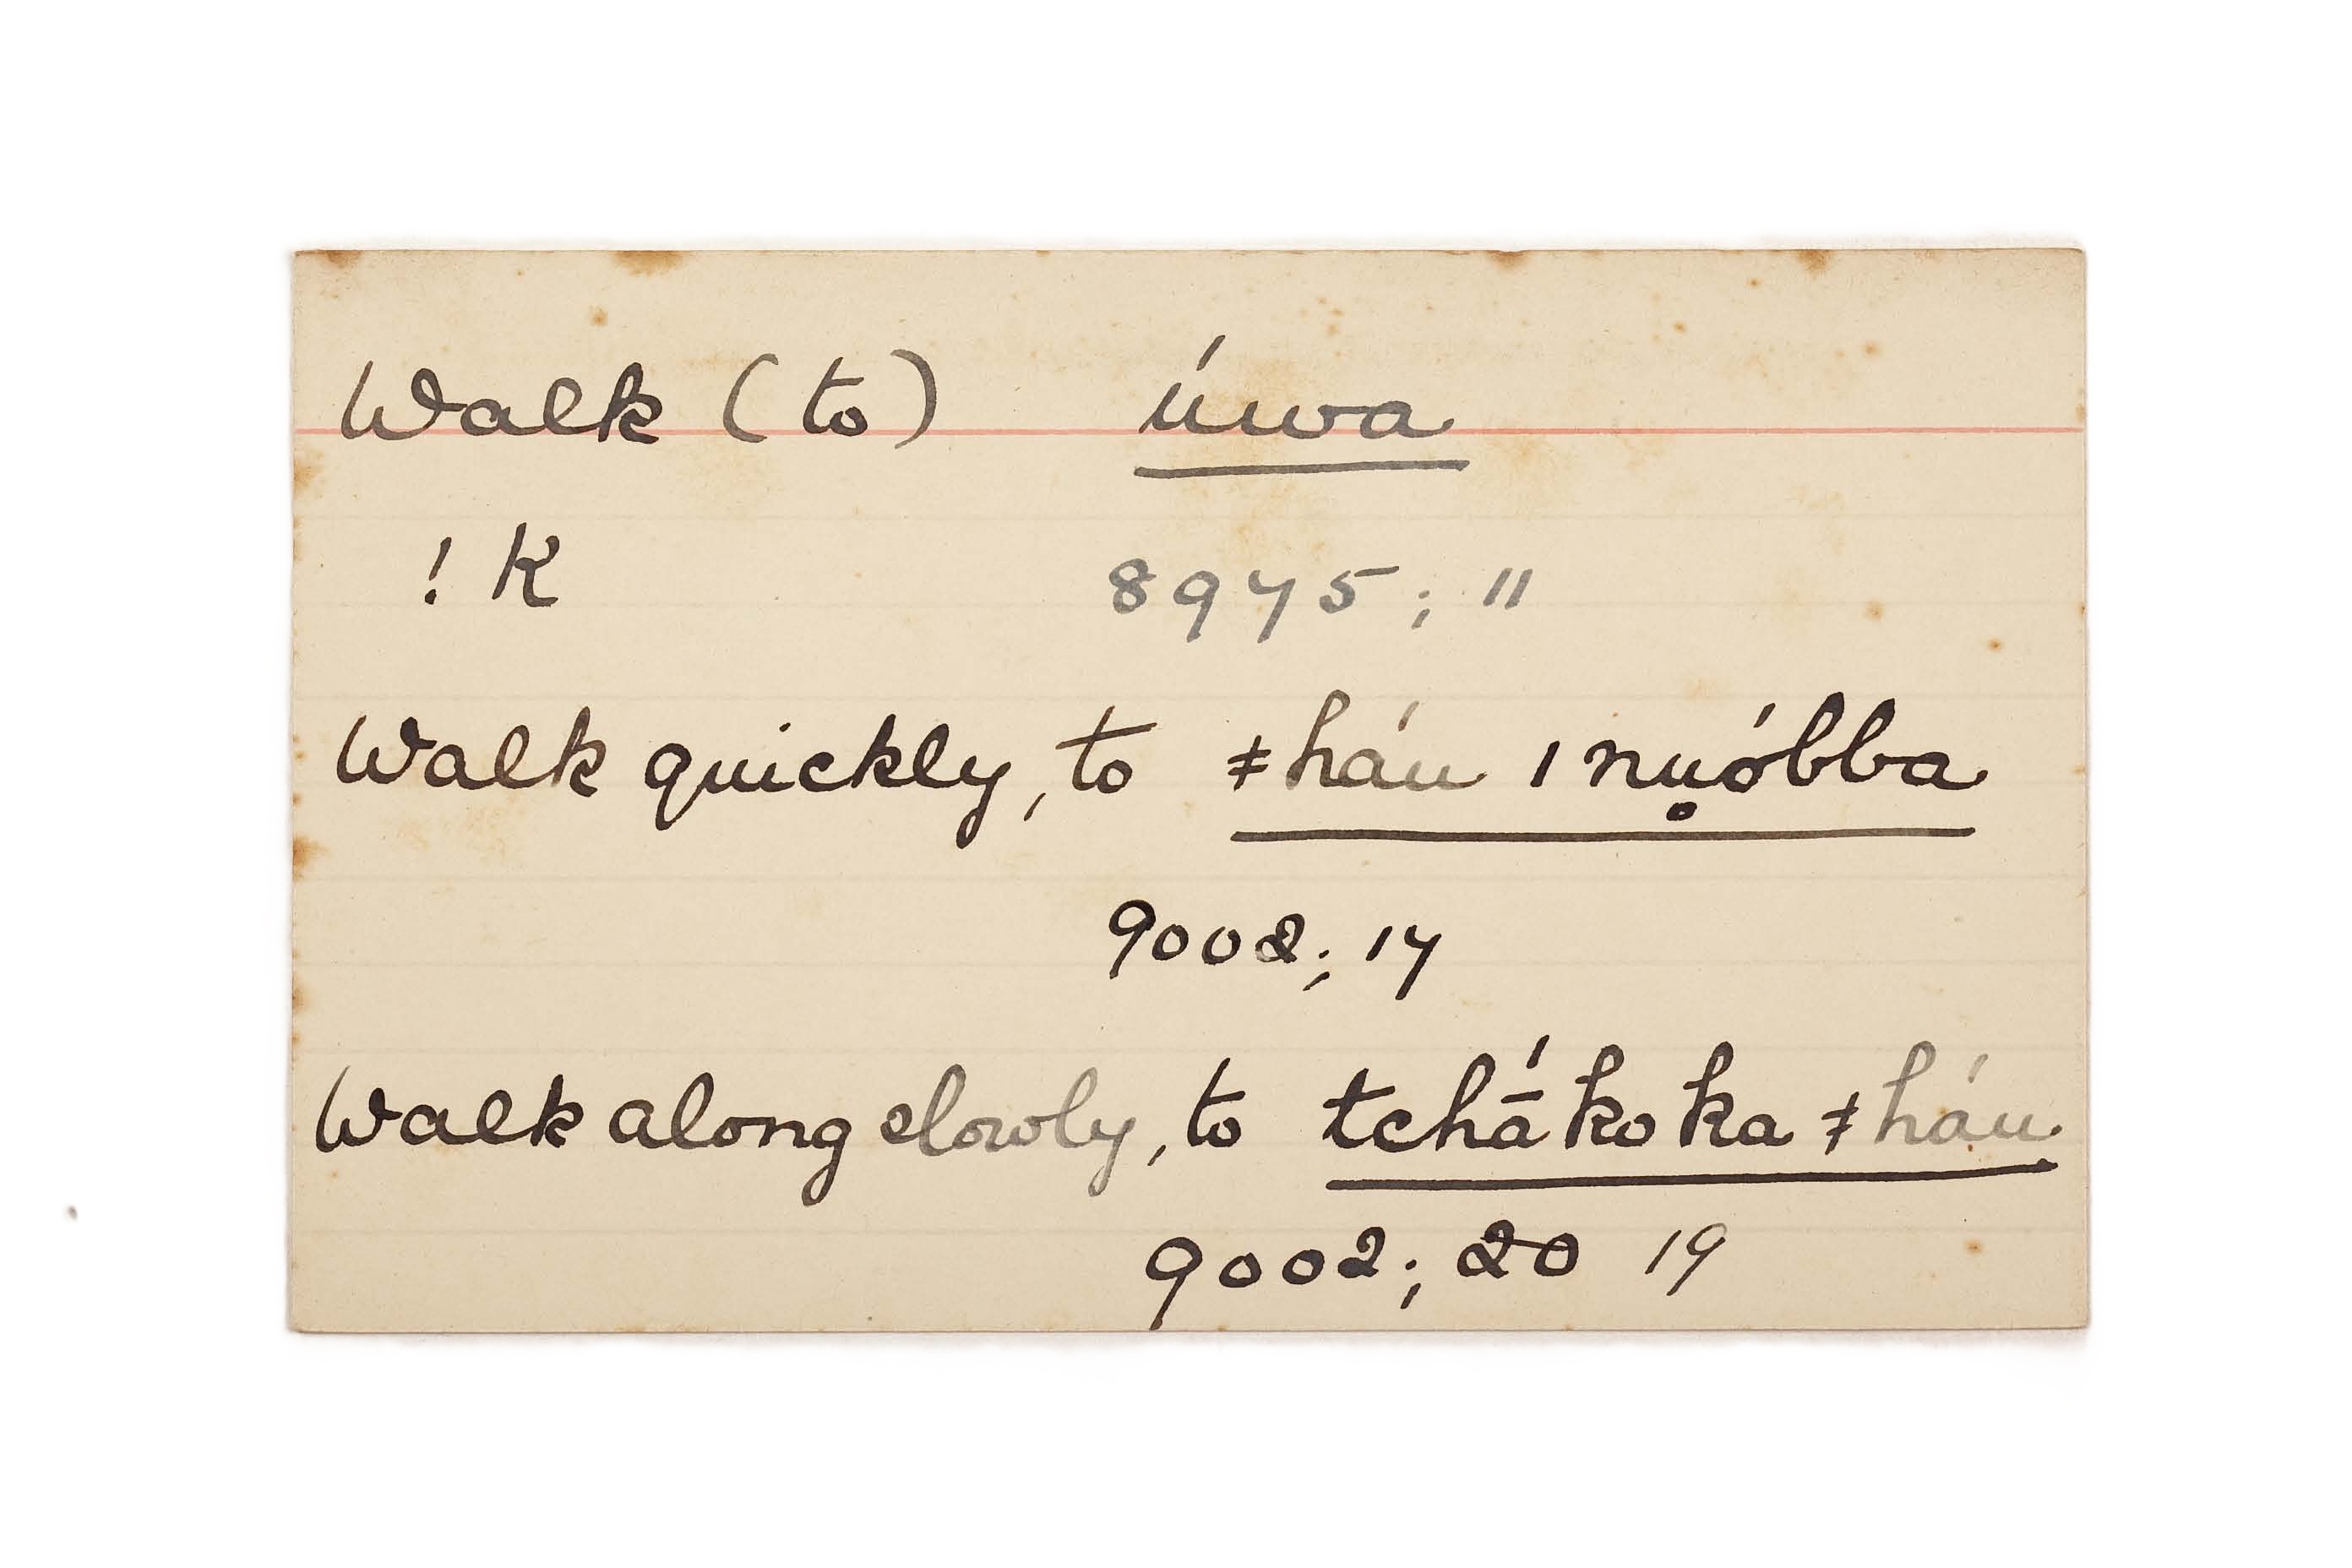 Walk (to) úwa
! K 8975; 11
Walk quickly, to ǂhán ǀnu̥óbba
9002; 17
Walk along slowly, to tchā́koka ǂhán
9002; 20 19